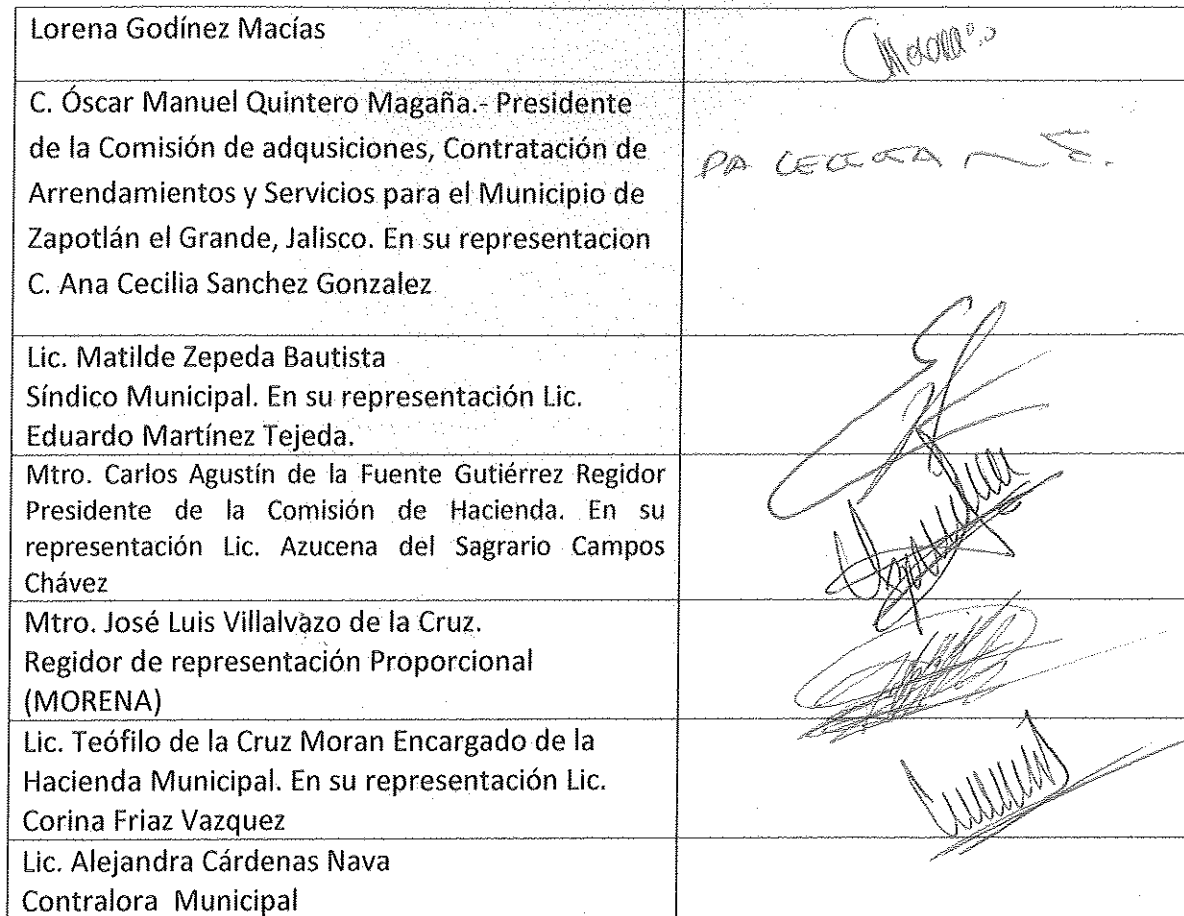 Lorena Godínez Macías
C. Óscar Manuel Quintero Magaña.- Presidente
de la Comisión de adqusiciones, Contratación de
Arrendamientos y Servicios para el Municipio de
Zapotlán el Grande, Jalisco. En su representacion
C. Ana Cecilia Sanchez Gonzalez
Lic. Matilde Zepeda Bautista
Síndico Municipal. En su representación Lic.
Eduardo Martínez Tejeda.
Mtro. Carlos Agustín de la Fuente Gutiérrez Regidor
Presidente de la Comisión de Hacienda. En su
representación Lic. Azucena del Sagrario Campos
Chávez
Mtro. José Luis Villalvazo de la Cruz.
Regidor de representación Proporcional
(MORENA)
Lic. Teófilo de la Cruz Moran Encargado de la
Hacienda Municipal. En su representación Lic.
Corina Friaz Vazquez
Lic. Alejandra Cárdenas Nava
Contralora Municipal